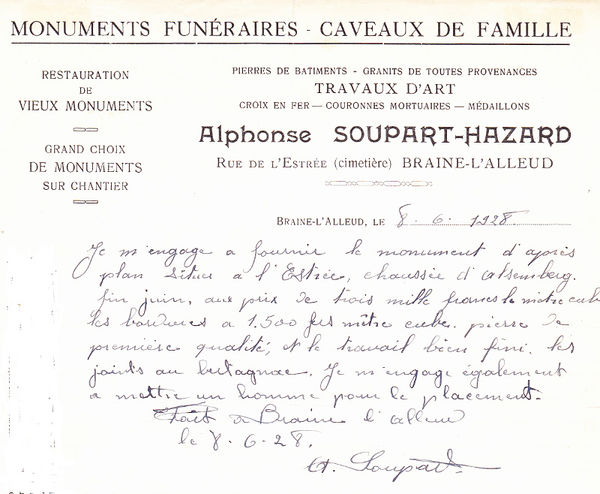 MONUMENTS FUNÉRAIRES - CAVEAUX DE FAMILLE
RESTAURATION
DE
VIEUX MONUMENTS
GRAND CHOIX
DE MONUMENTS
SUR CHANTIER
PIERRES DE BATIMENTS - GRANITS DE TOUTES PROVENANCES
TRAVAUX D'ART
CROIX EN FER — COURONNES MORTUAIRES — MÉDAILLONS
Alphonse SOUPART-HAZARD
RUE DE L'ESTRÉE (cimetière) BRAINE-L'ALLEUD
BRAINE-L'ALLEUD, LE 8. 6. 1928.
Je m'engage a fournir le monument d'après
plan situé à l'Estrée, chaussée d'Alsemberg.
fin juin, aux prix de trois mille francs le mètre cub
les bordures a 1.500 frs mètre cube. pierre de
première qualité, et le travail bien fini. les
joints au. Je m'engage également
a mettre un homme pour le placement.
Fait a Braine l'alleud
le 8. 6. 28.
A. Soupart